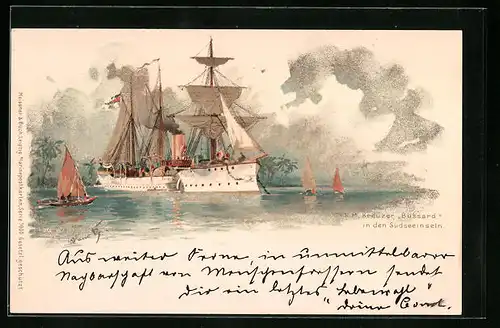 S. M. Kreuzer „Bussard"
in den Südseeinseln.
Aus weiter Ferne, in unmittelbarer
Nachbarschaft von Menschenfressern sendet
Dir ein letztes „Lebewohl"
deine
Meissner & Buch, Leipzig. Marinepostkarten, Serie 1000 Gesetzl. geschützt